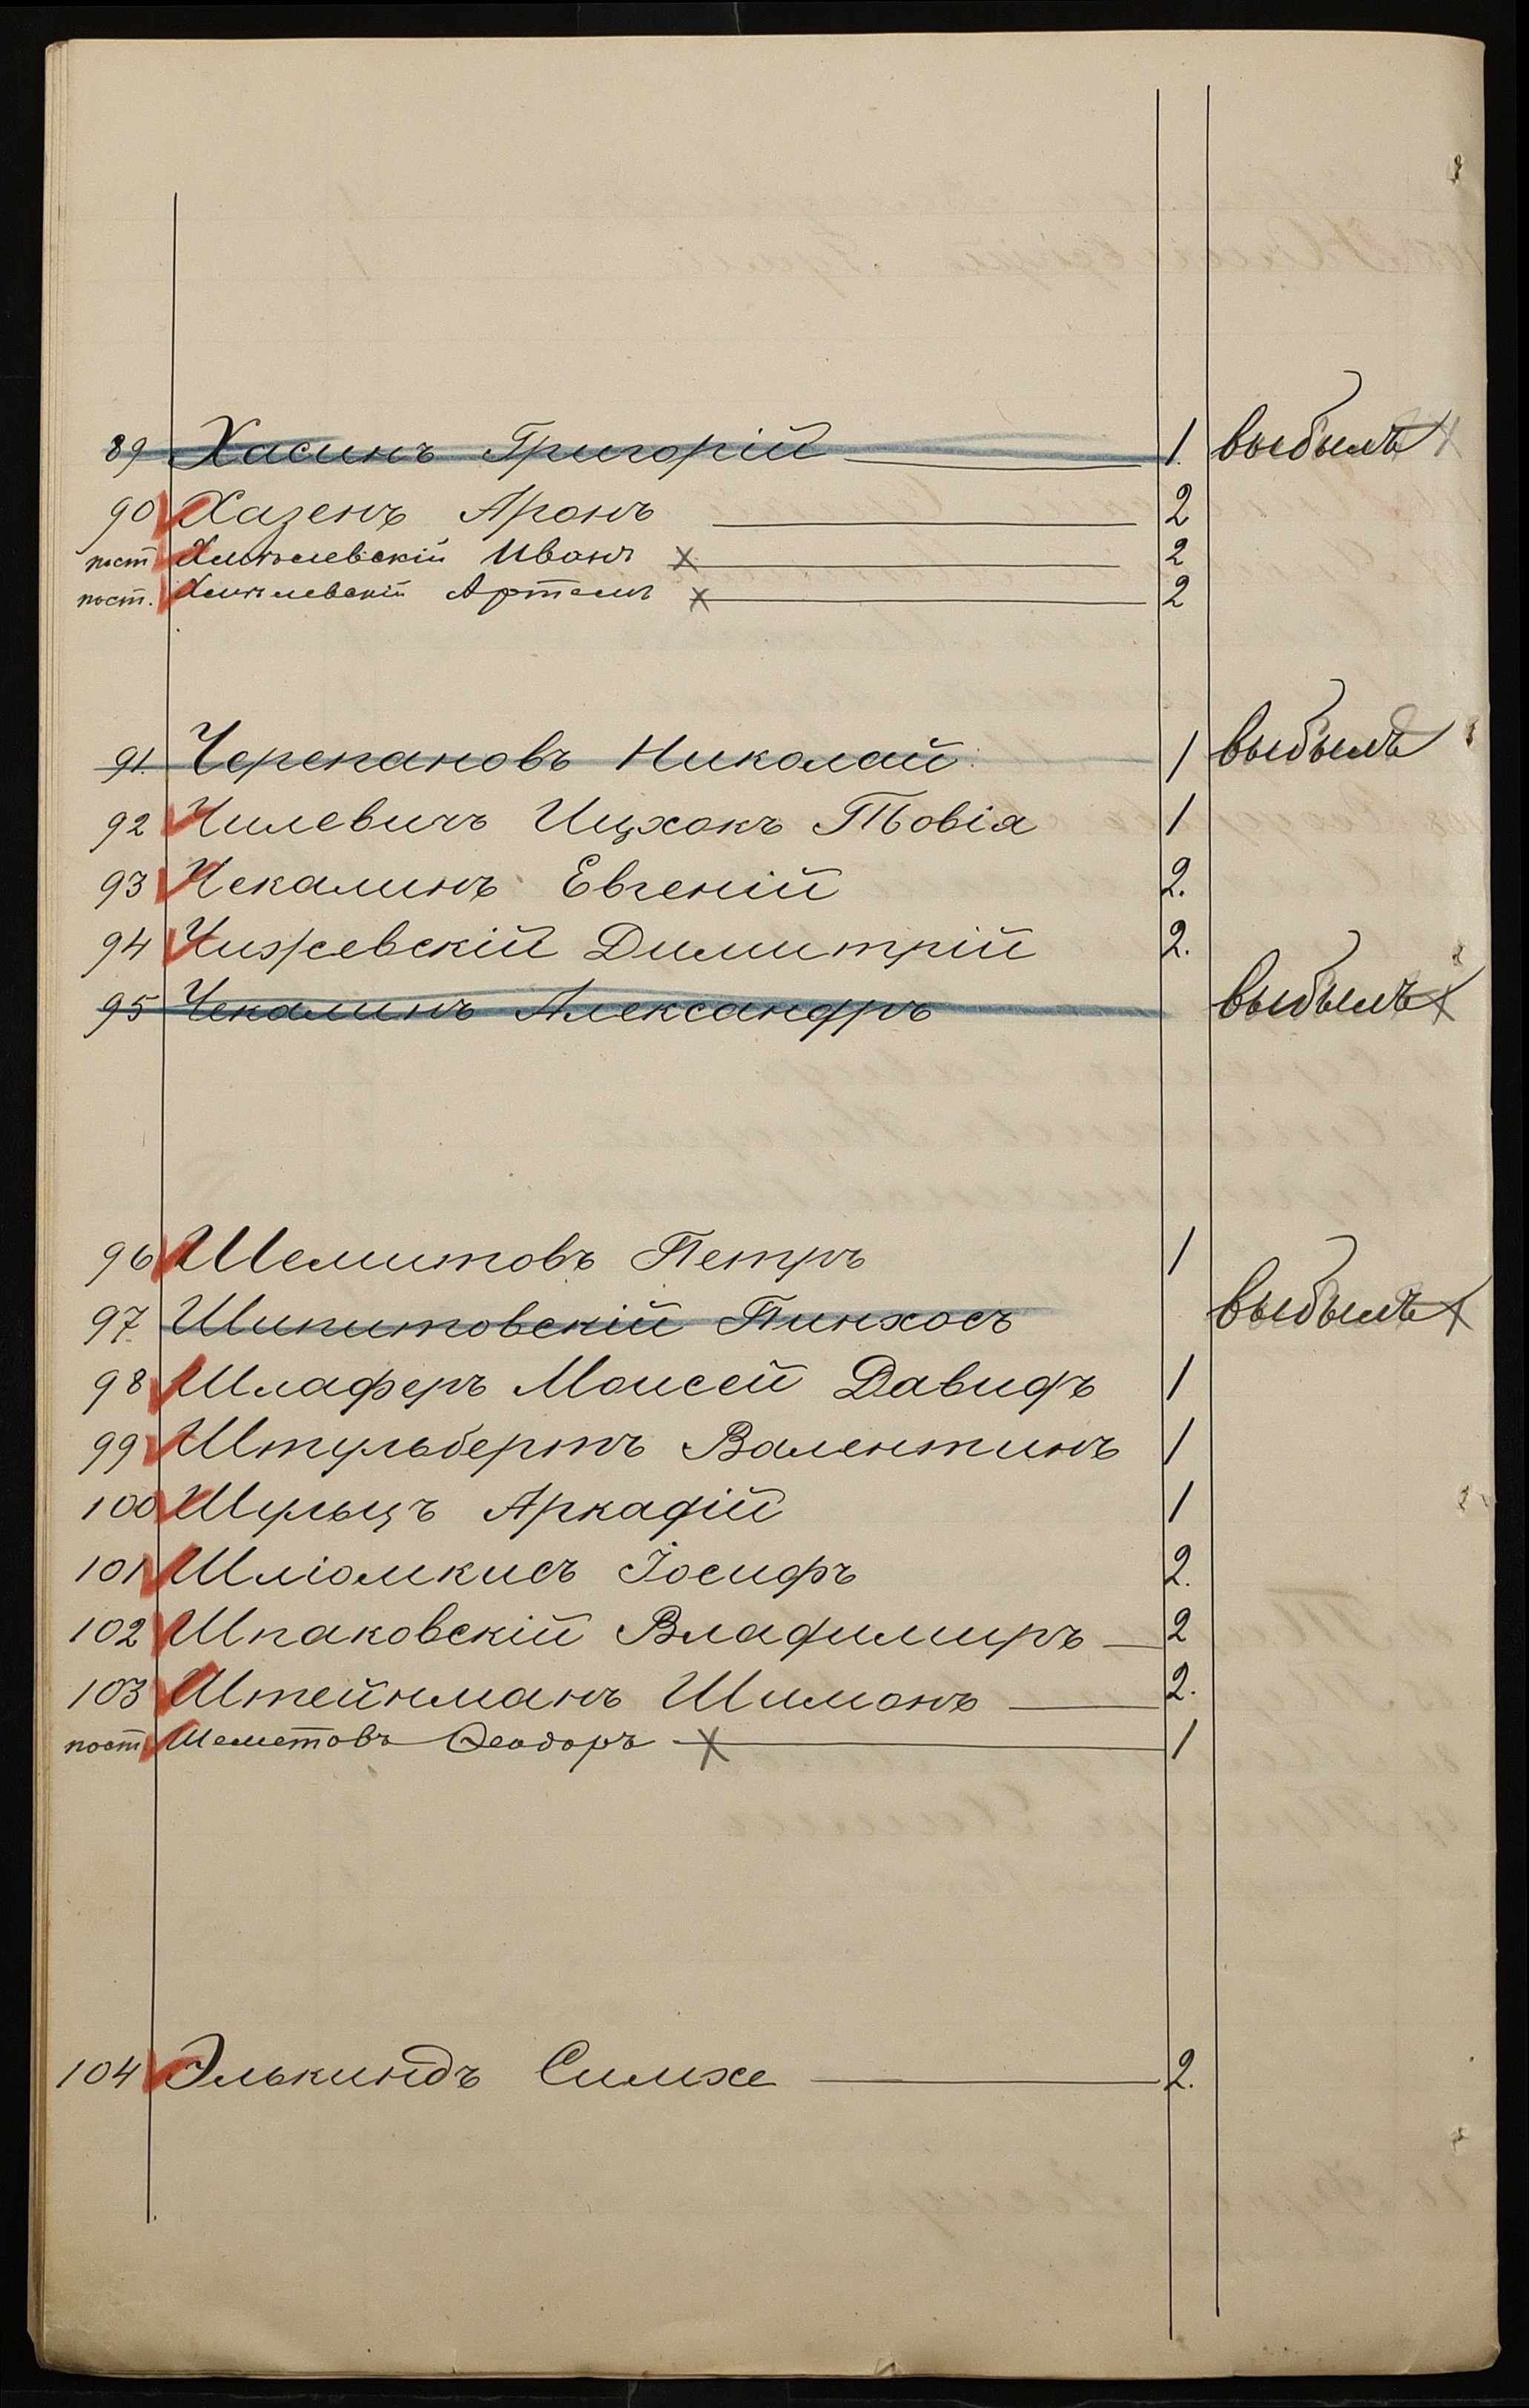 89 Хасинъ Григорій 1. выбылъ
90 Хазенъ Аронъ 2
пост Хмѣлевскій Иванъ 2
пост. Хмѣлевскій Артемъ 2
91. Черепановъ Николай 1 выбылъ
92 Чилевичъ Ицхокъ Товія 1
93 Чекалинъ Евгеній 2.
94 Чижевскій Димитрій 2.
95 Чекалинъ Александръ выбылъ
96 Шемитовъ Петръ 1
97 Шипитовскій Пинхосъ выбылъ
98 Шлаферъ Моисей Давидъ 1
99 Штульбергъ Валентинъ 1
100 Шульцъ Аркадій 1
101 Шліомкисъ Іосифъ 2.
102 Шпаковскій Владимиръ 2
103 Штейнманъ Шимонъ 2.
пост Шеметовъ Ѳеодоръ 1
104 Элькиндъ Симхе 2.